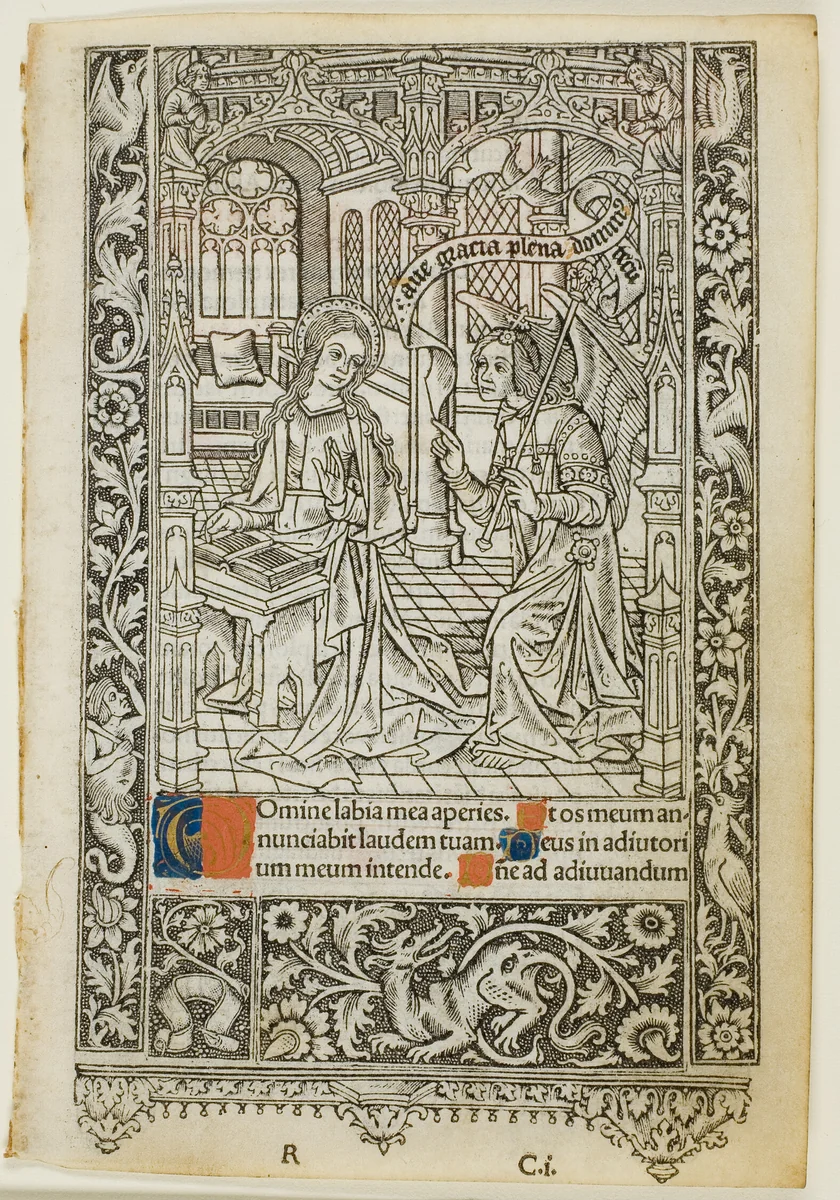 aue gracia plena dominus tecū
Domine labia mea aperies. Et os meum an-
nunciabit laudem tuam. Deus in adiutori
um meum intende. Dñe ad adiuuandum
R C.i.